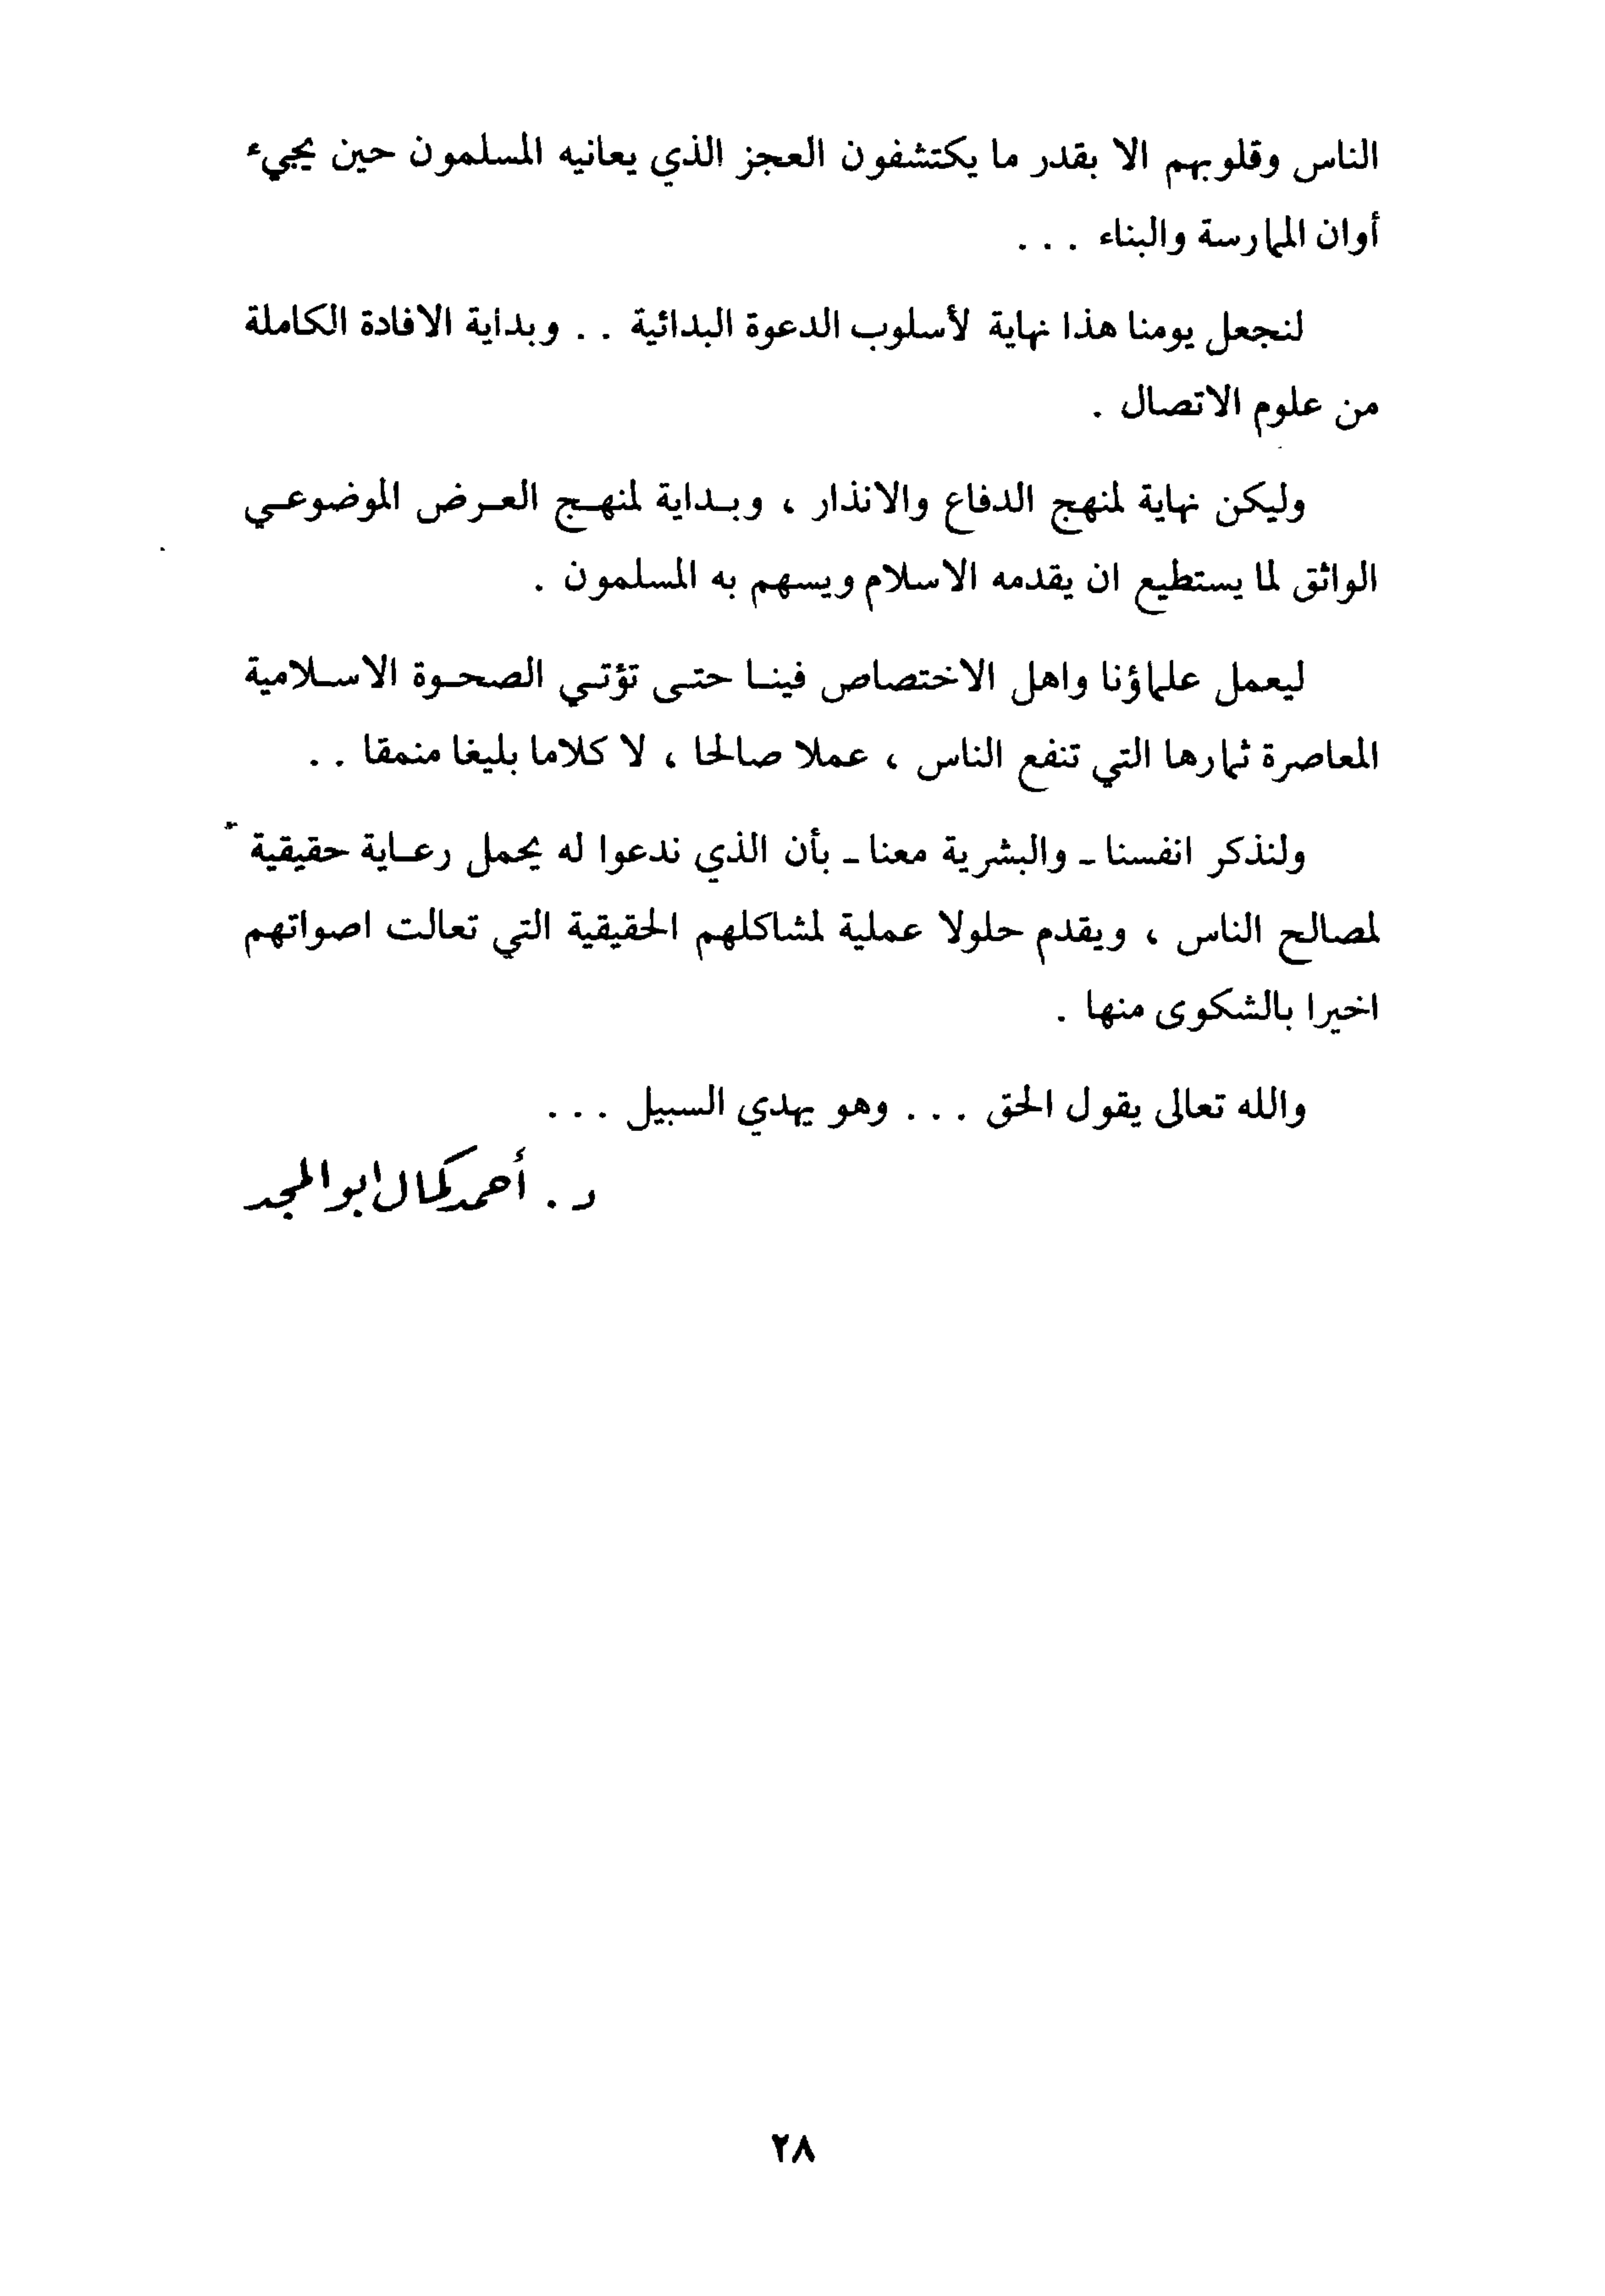 الناس وقلوبهم الا بقدر ما يكتشفون العجز الذي يعانيه المسلمون حين يجيء
أوان الممارسة والبناء . . .
لنجعل يومنا هذا نهاية لأسلوب الدعوة البدائية . . وبداية الافادة الكاملة
من علوم الاتصال .
وليكن نهاية لمنهج الدفاع والانذار ، وبداية لمنهج العرض الموضوعي
الواثق لما يستطيع ان يقدمه الاسلام ويسهم به المسلمون .
ليعمل علماؤنا واهل الاختصاص فينا حتى تؤتي الصحوة الاسلامية
المعاصرة ثمارها التي تنفع الناس ، عملا صالحا ، لا كلاما بليغا منمقا . .
ولنذكر انفسنا ـ والبشرية معنا ـ بأن الذي ندعوا له يحمل رعاية حقيقية
لمصالح الناس ، ويقدم حلولا عملية لمشاكلهم الحقيقية التي تعالت اصواتهم
اخيرا بالشكوى منها .
والله تعالى يقول الحق . . . وهو يهدي السبيل . . .
د . أحمد كمال ابو المجد
٢٨